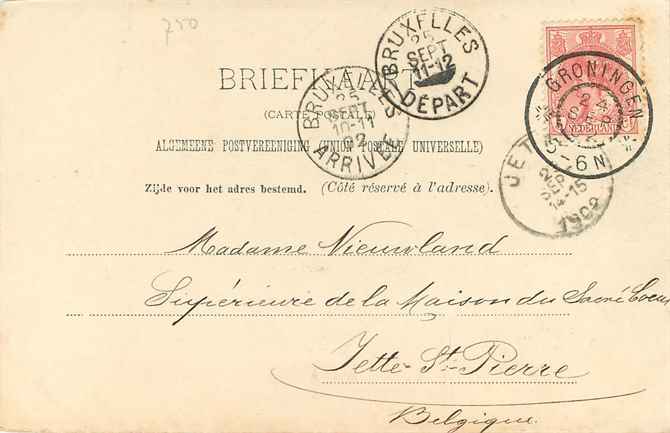 750
BRUXELLES
25
SEPT
11-12
DÉPART
BRIEFKAART
(CARTE POSTALE)
BRUXELLES
25
SEPT
10-11
02
ARRIVÉE
GRONINGEN
24
SEP
5-6N
NEDERLAND
ALGEMEENE POSTVEREENIGING (UNION POSTALE UNIVERSELLE)
Zijde voor het adres bestemd. (Côté réservé à l'adresse).
JETTE
1902
Madame Nieuwland
Supérieure de la Maison du Sacré Coeur
Jette-St-Pierre
Belgique.